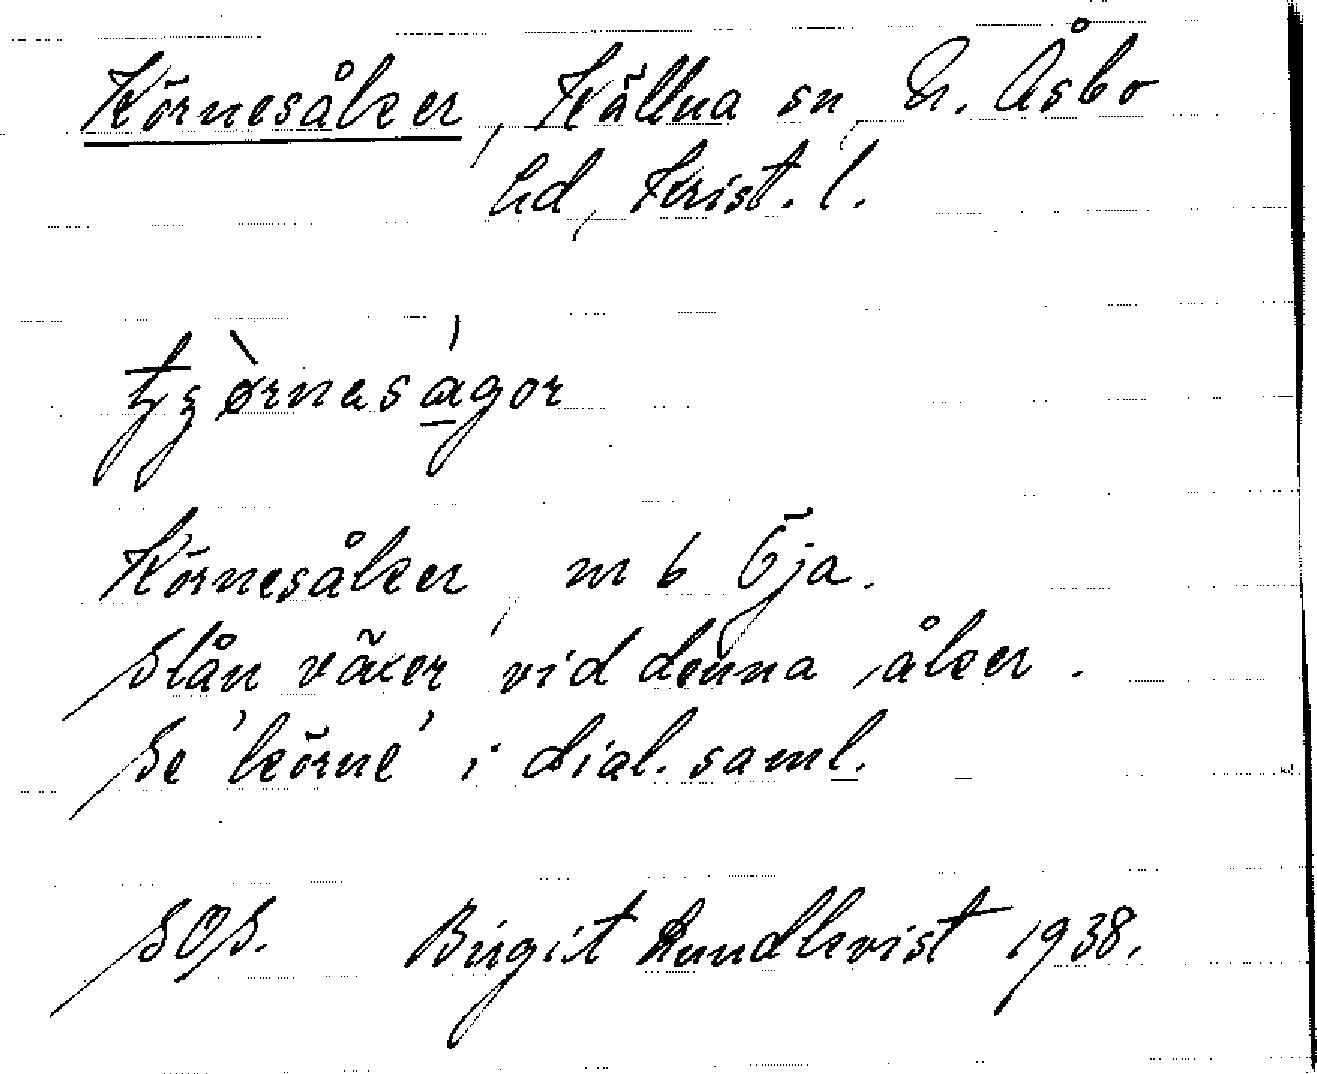 Körnesåker, Källna sn, N. Åsbo
hd, Krist. l.
Körnesåker, nr 6 Öja.
Slån växer vid denna åker.
Se 'körne' i dial. saml.
SOS. Birgit Lundkvist 1938.